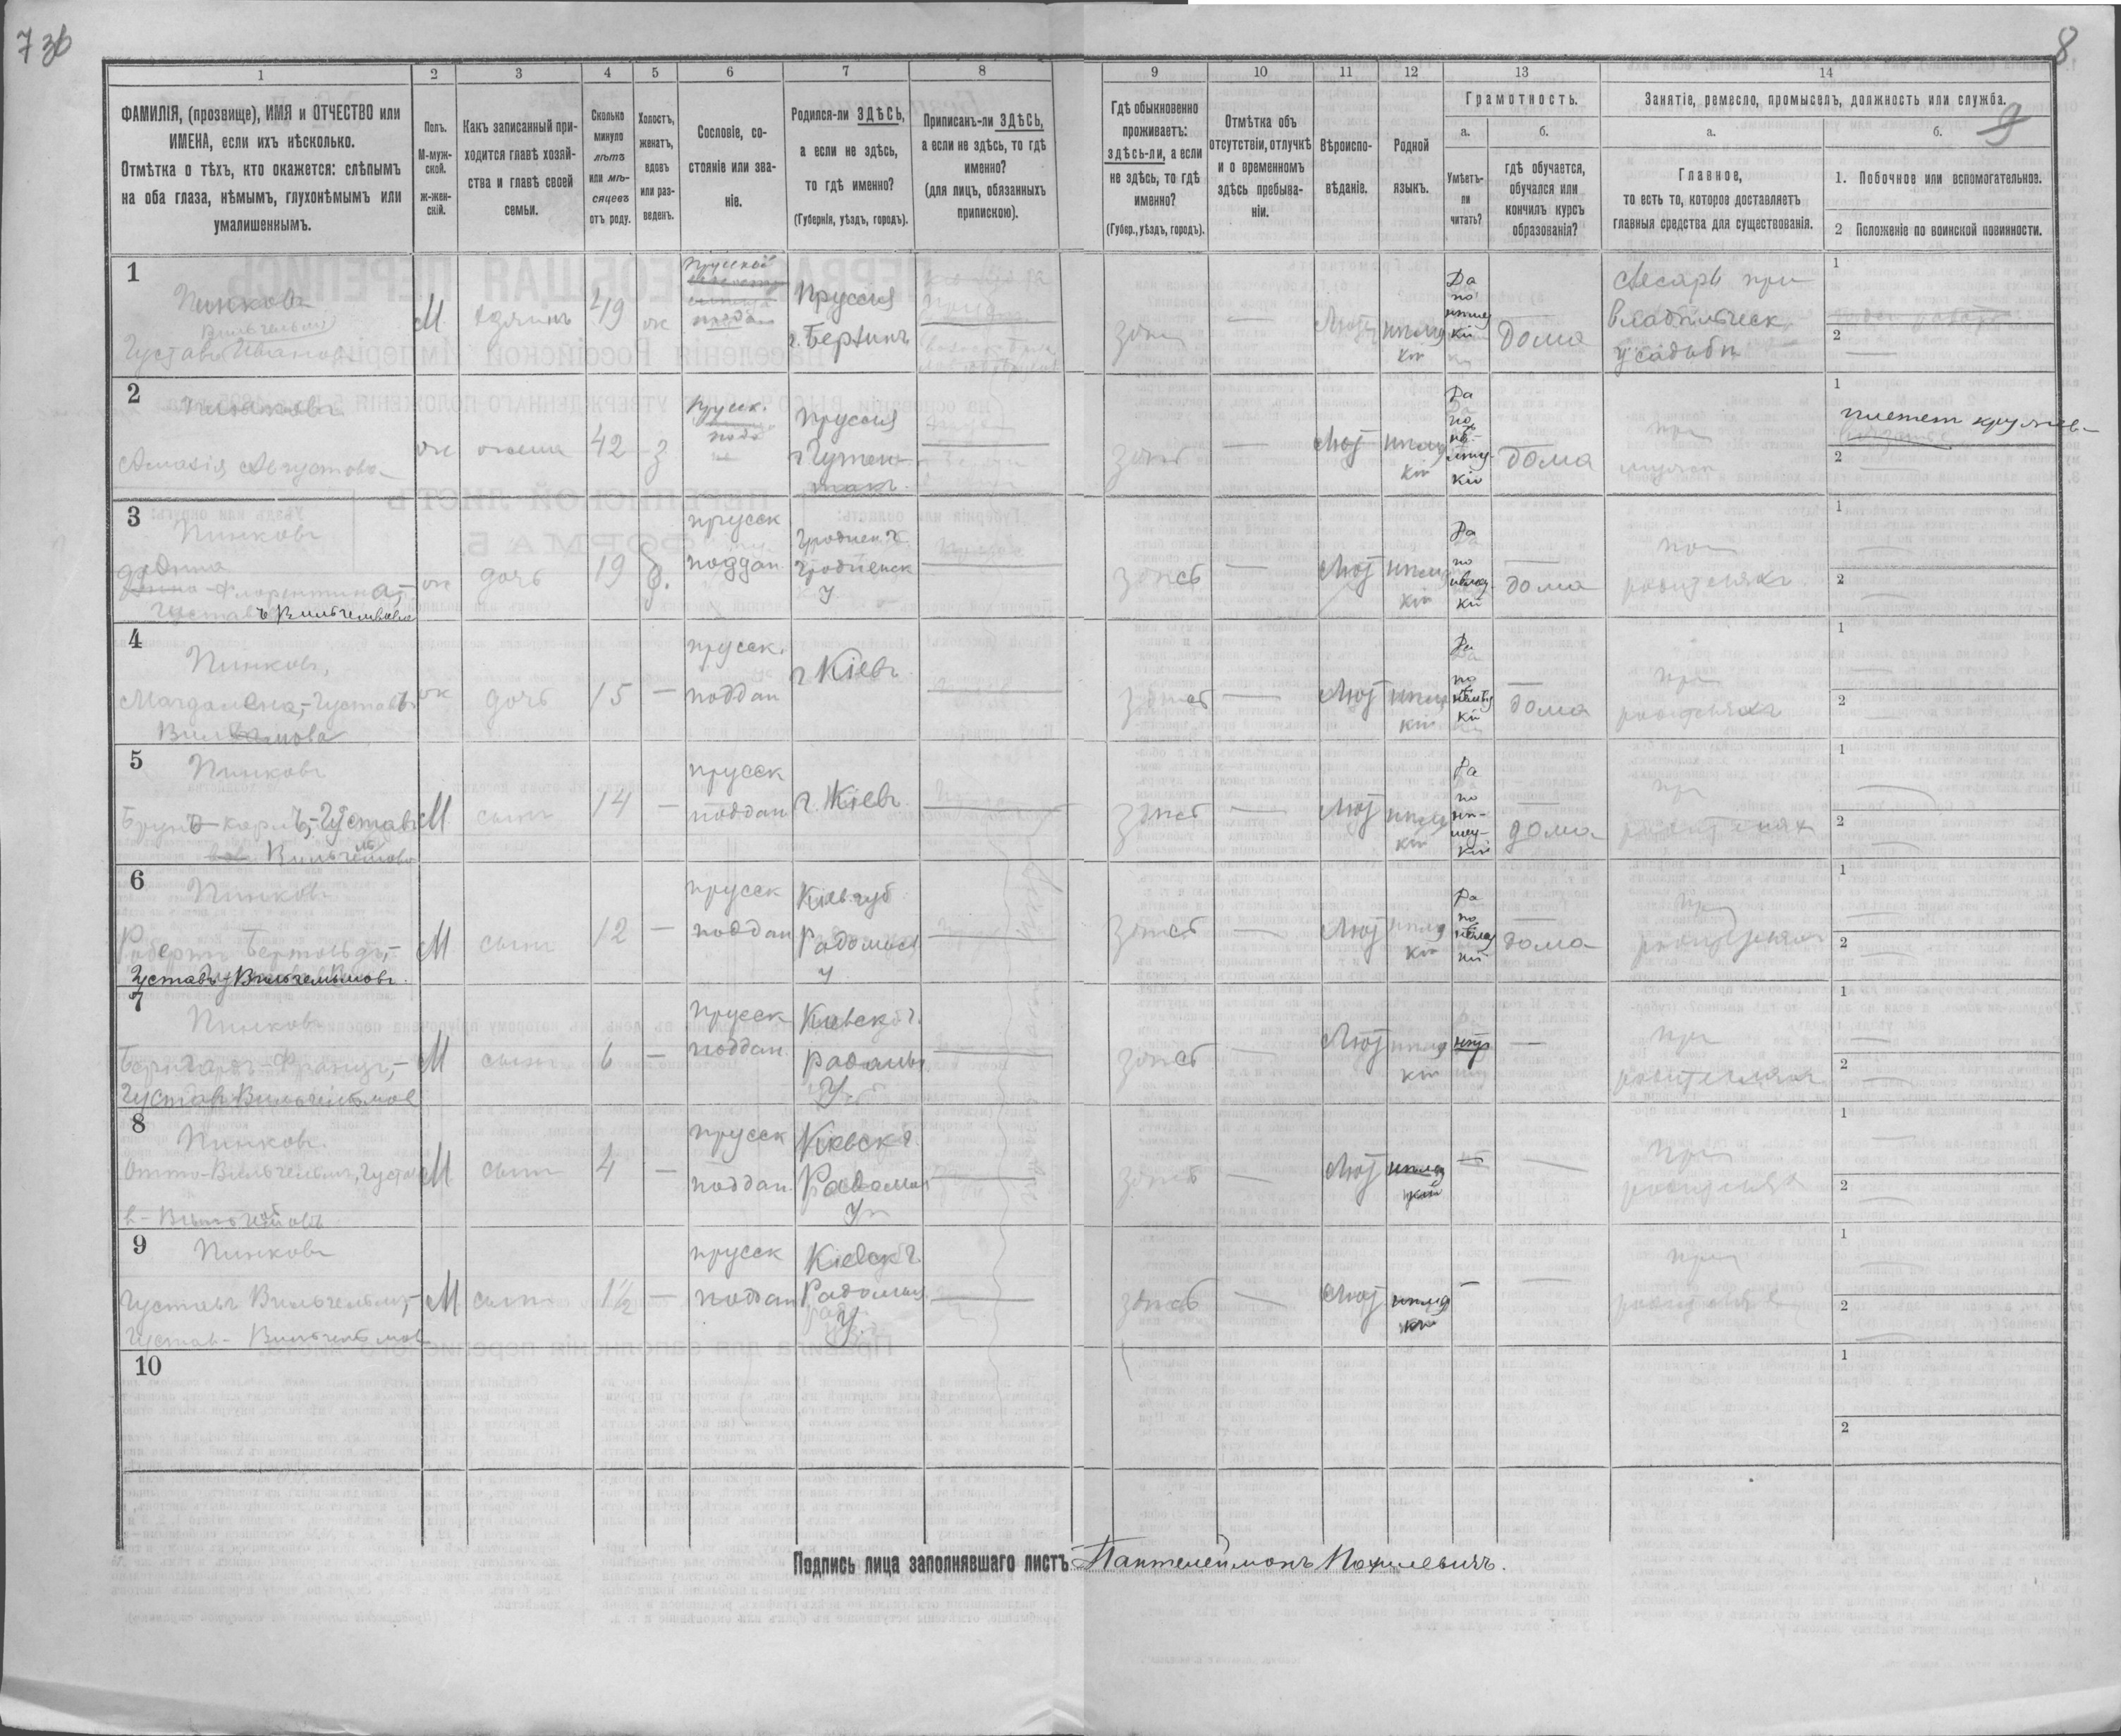 7 зб
8
9
1
2
3
4
5
6
7
8
9
10
11
12
13
14
ФАМИЛІЯ, (прозвище), ИМЯ и ОТЧЕСТВО или
ИМЕНА, если ихъ нѣсколько.
Отмѣтка о тѣхъ, кто окажется: слѣпымъ
на оба глаза, нѣмымъ, глухонѣмымъ или
умалишеннымъ.
Полъ.
М-муж-
ской.
ж-жен-
скій.
Какъ записанный при-
ходится главѣ хозяй-
ства и главѣ своей
семьи.
Сколько
минуло
лѣтъ
или мѣ-
сяцевъ
отъ роду.
Холостъ,
женатъ,
вдовъ
или раз-
веденъ.
Сословіе, со-
стояніе или зва-
ніе.
Родился-ли ЗДѢСЬ,
а если не здѣсь,
то гдѣ именно?
(Губернія, уѣздъ, городъ).
Приписанъ-ли ЗДѢСЬ,
а если не здѣсь, то гдѣ
именно?
(для лицъ, обязанныхъ
припискою).
Гдѣ обыкновенно
проживаетъ:
здѣсь-ли, а если
не здѣсь, то гдѣ
именно?
(Губер., уѣздъ, городъ).
Отмѣтка объ
отсутствіи, отлучкѣ
и о временномъ
здѣсь пребыва-
ніи.
Вѣроиспо-
вѣданіе.
Родной
языкъ.
Грамотность.
а.
Умѣетъ-
ли
читать?
б.
гдѣ обучается,
обучался или
кончилъ курсъ
образованія?
Занятіе, ремесло, промыселъ, должность или служба.
а.
Главное,
то есть то, которое доставляетъ
главныя средства для существованія.
б.
1. Побочное или вспомогательное.
2 Положеніе по воинской повинности.
1
Пинковъ
Густавъ Ивановъ
М
хозяинъ
49
ж
Пруссія
г. Берлинъ
Лют
нѣмец
кій
Да
по
нѣмец
кій
Дома
Слесарь при
владѣльческ
усадьбѣ
1
2
2
Пинковъ
Амалія Августова
ж
жена
42
з
Прусск.
Пруссія
здѣсь
Лют
нѣмец
кій
Да
по
нѣ-
мец-
кій
дома
при
мужѣ
1
плетет кружев-
2
3
Пинковъ
Анна
Флорентина,-
Густавъ Вильгельмова
ж
дочь
19
д.
прусск
поддан
Гроднен. г.
Гродненск
у
здѣсь
Лют
нѣмец
кій
Да
по
нѣмец
кій
дома
при
родителяхъ
1
2
4
Пинковъ,
Магдалена,-Густавъ
Вильгельмова
ж
дочь
15
прусск.
поддан
г Кіевъ
здѣсь
Лют
нѣмец
кій
Да
по
нѣмец
кій
дома
при
родителяхъ
1
2
5
Пинковъ
Бруно-карлъ,-Густавъ
Вильгельмовъ
М
сынъ
14
прусск
поддан
г. Кіевъ
здѣсь
Лют
нѣмец
кій
Да
по
нѣ-
мец-
кій
дома
при
родителях
1
2
6
Пинковъ
Робертъ Бертольдъ,-
Густавъ-Вильгельмовъ.
М
сынъ
12
прусск
поддан
Кіев. губ
Радомысл
у
здѣсь
Лют
нѣмец
кій
Да
по
нѣмец
кій
дома
при
родителях
1
2
7
Пинковъ
Бернгардъ-Францъ,-
Густавъ Вильгельмов
М
сынъ
6
прусск
поддан.
Кіевск г.
Радомы
У.
здѣсь
Лют
нѣмец
кій
нѣт
при
родителях
1
2
8
Пинковъ.
Отто-Вильгельмъ, Густа
в- Вильгельмовъ
М
сынъ
4
прусск
поддан.
Кіевск г.
Радомыс
У
здѣсь
Лют
нѣмец
кій
при
родителях
1
2
9
Пинковъ
Густавъ Вильгельмъ,-
Густав- Вильгельмов
М
сынъ
1½
прусск
поддан
Кіевск г.
Радомыс
У.
здѣсь
Лют
нѣмец
кій
при
родителях
1
2
10
1
2
Подпись лица заполнявшаго листъ Пантелеймонъ Похилевичъ.